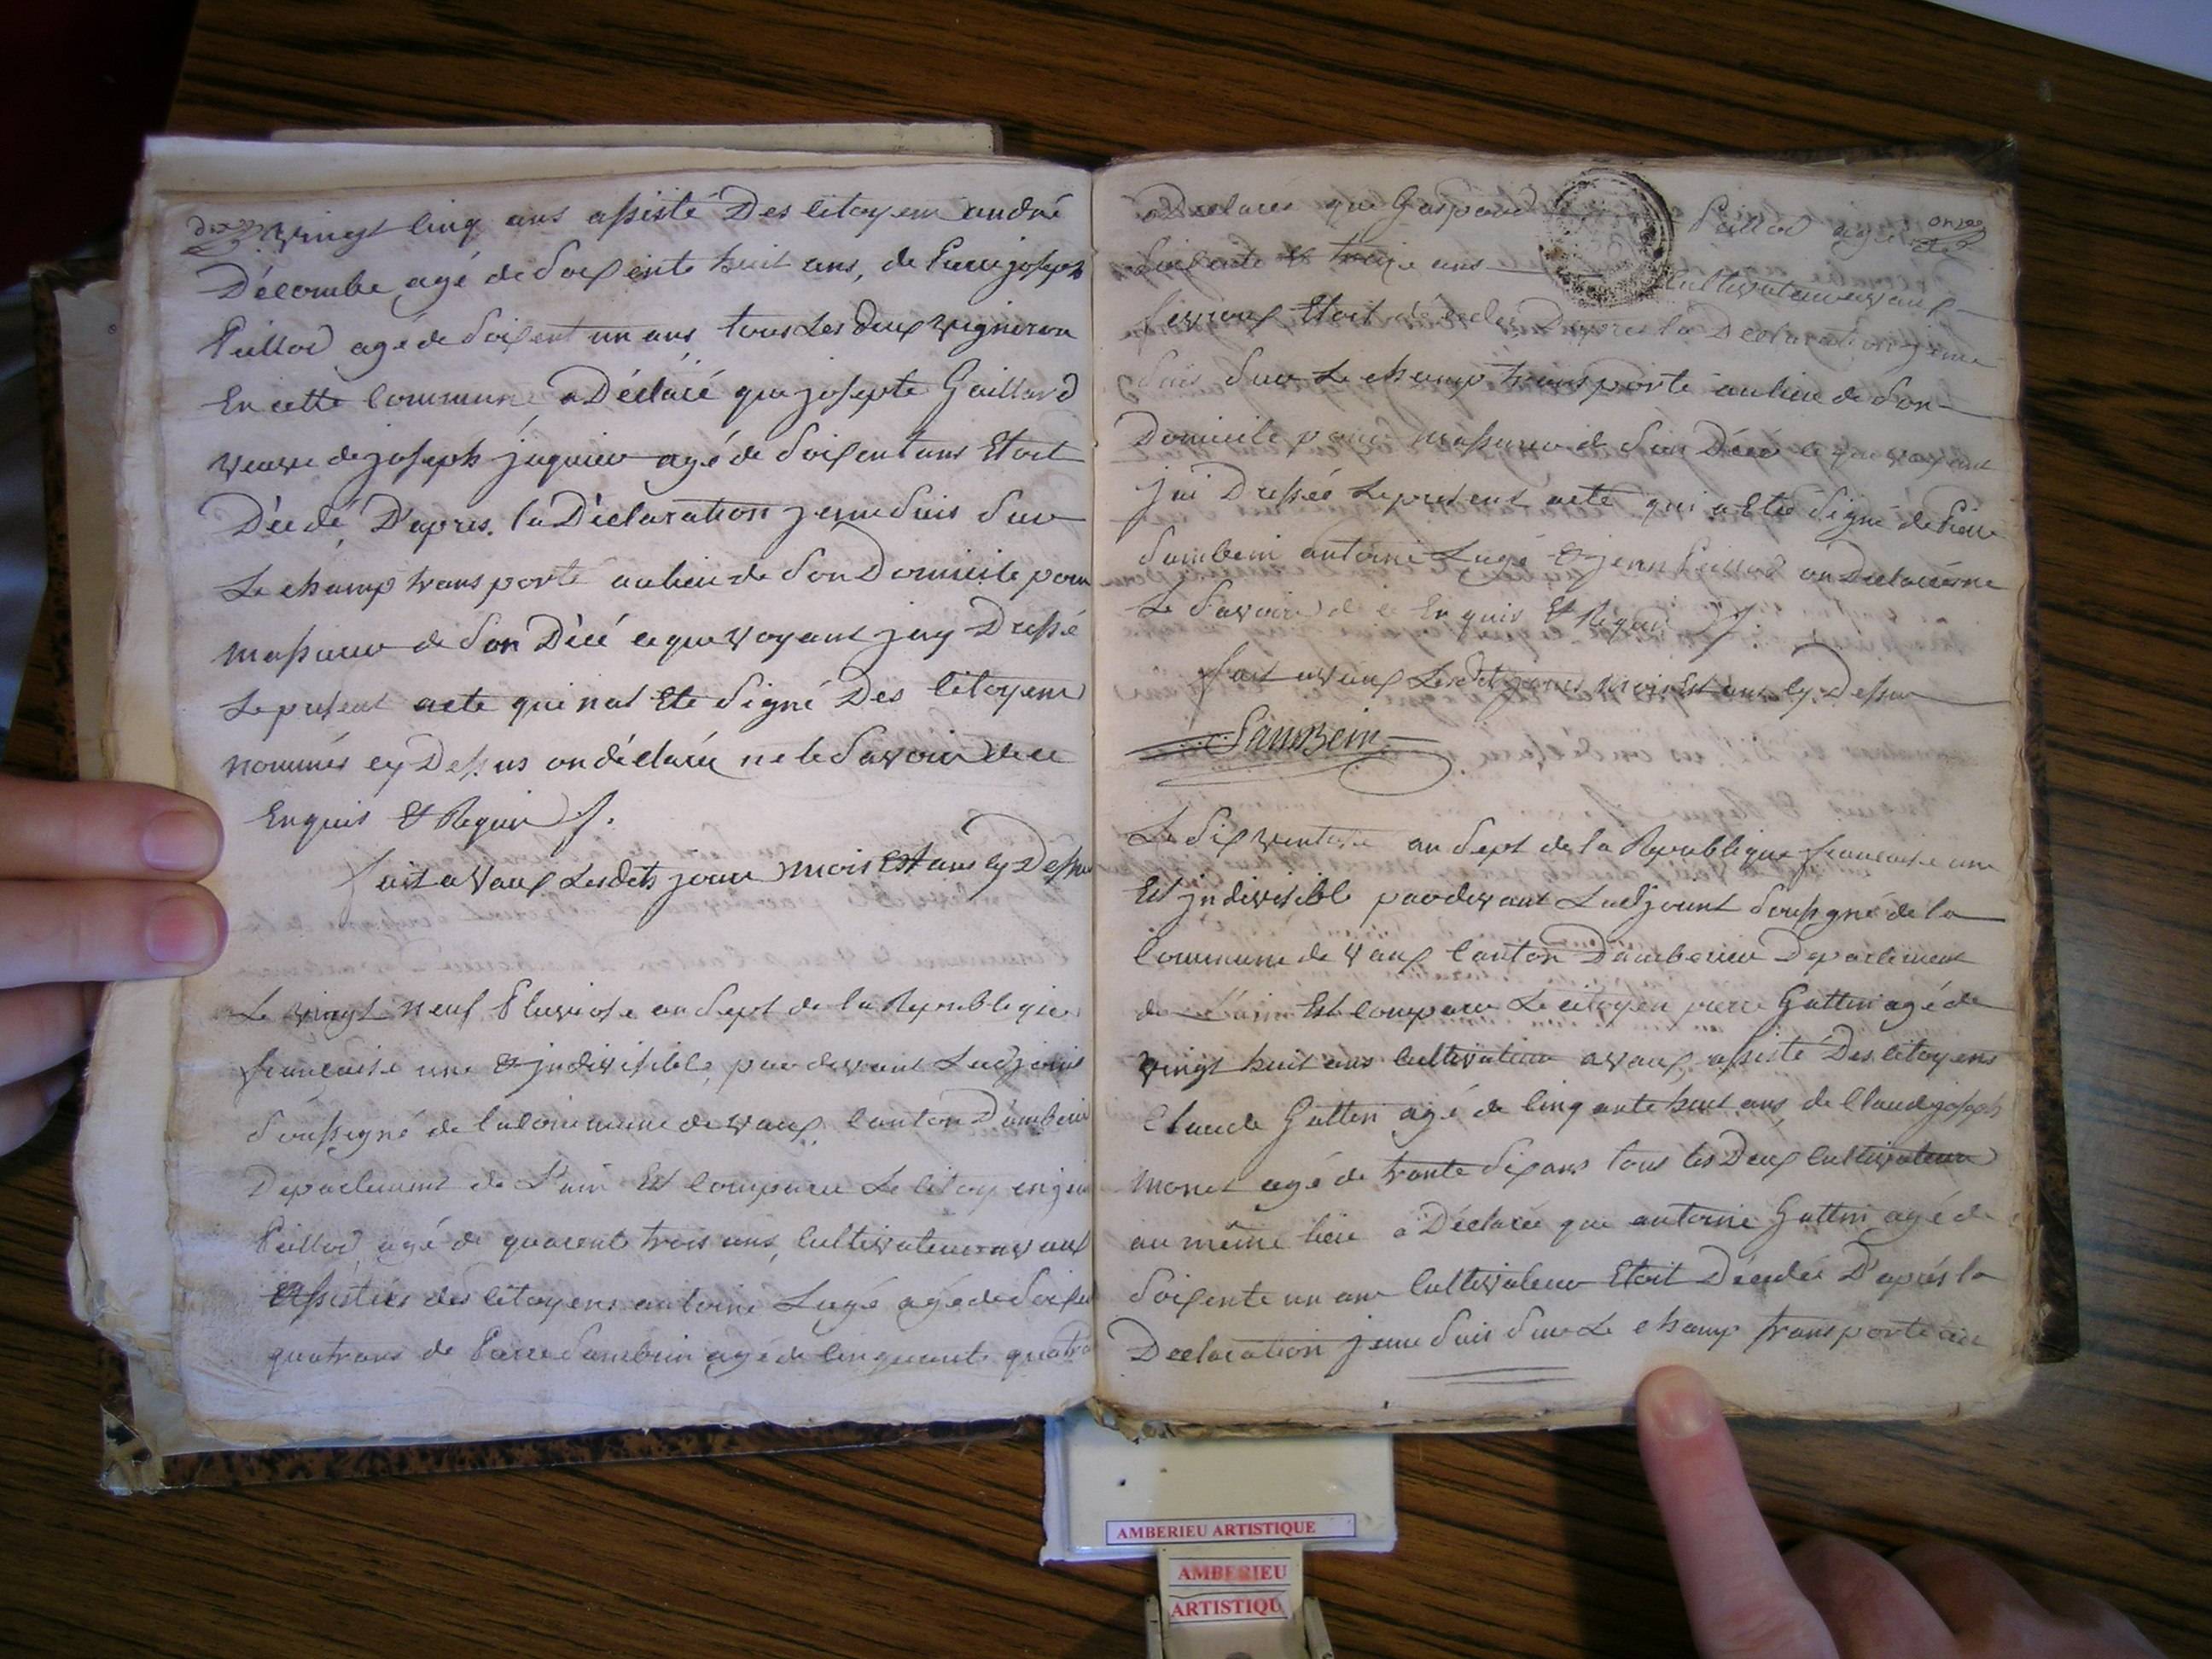 dix
vingt Cinq ans assisté Des Citoyens andré
Décombe agé de Soixente huit ans, de Pierre joseph
Peillod agé de Soixent un ans tous Les deux vigneron
En cette Commune a Déclaré que josepte Gaillard
veuve de joseph juquier agé de Soixent ans Etoit
Décédé, D'apres la Déclaration je me Suis Sur
Le champ transporté au lieu de Son Domicile pour
massurer de Son Décé ce que voyant jay Dressé
Le present acte qui nat Eté Signé Des Citoyens
nommés cy Dessus on déclaré ne le Savoir de ce
Enquis & Requis /.
fait a Vaux Lesdits jour mois Et ans cy Dessus
Le vingt neuf Pluviose an Sept de la Republique
francaise une & jndivisible, par devant Ladjoint
Soussigné de la Commune de vaux, Canton D'amberieu
Departement de L'ain Est Comparu Le Citoyen jean
Peillod agé de quarent trois ans, Cultivateur a vaux
Assistés des Citoyens antoine Lugé agé de Soixent
quatrans de Pierre Sambein agé de Cinquante quatre
onze
a Declarés que Gaspard Peillod agé de
Soixente & treize ans Cultivateur a vaux
Etoit décédés D'apres la Declaration je me
Suis Sur Le champ transporté au lieu de Son
Domicile pour massurer de Son Décé ce que voyant
jai Dressée Le present acte qui a Eté Signé de Pierre
Sambein antoine Lugé & jean Peillod on Declarés ne
Le Savoir de ce Enquis & Requis /.
fait a vaux Lesdits jour mois Et ans cy Dessus
SamBein
Le Six ventose an Sept de la Republique francaise une
Et jndivisible par devant Ladjoint Soussigné de la
Commune de vaux Canton D'amberieu Departement
de L'ain Est Comparu Le citoyen pierre Guttin agé de
vingt huit ans Cultivateur a vaux, assisté Des Citoyens
Claude Guttin agé de Cinqante huit ans, de Claude joseph
Monet agé de trante Six ans tous les Deux Cultivateur
au même lieu a Déclarée que antoine Guttin agé de
Soixente un ans Cultivateur Etoit Décédés D'aprés la
Declaration je me Suis Sur Le champ transporté au
AMBERIEU ARTISTIQUE
AMBERIEU
ARTISTIQU